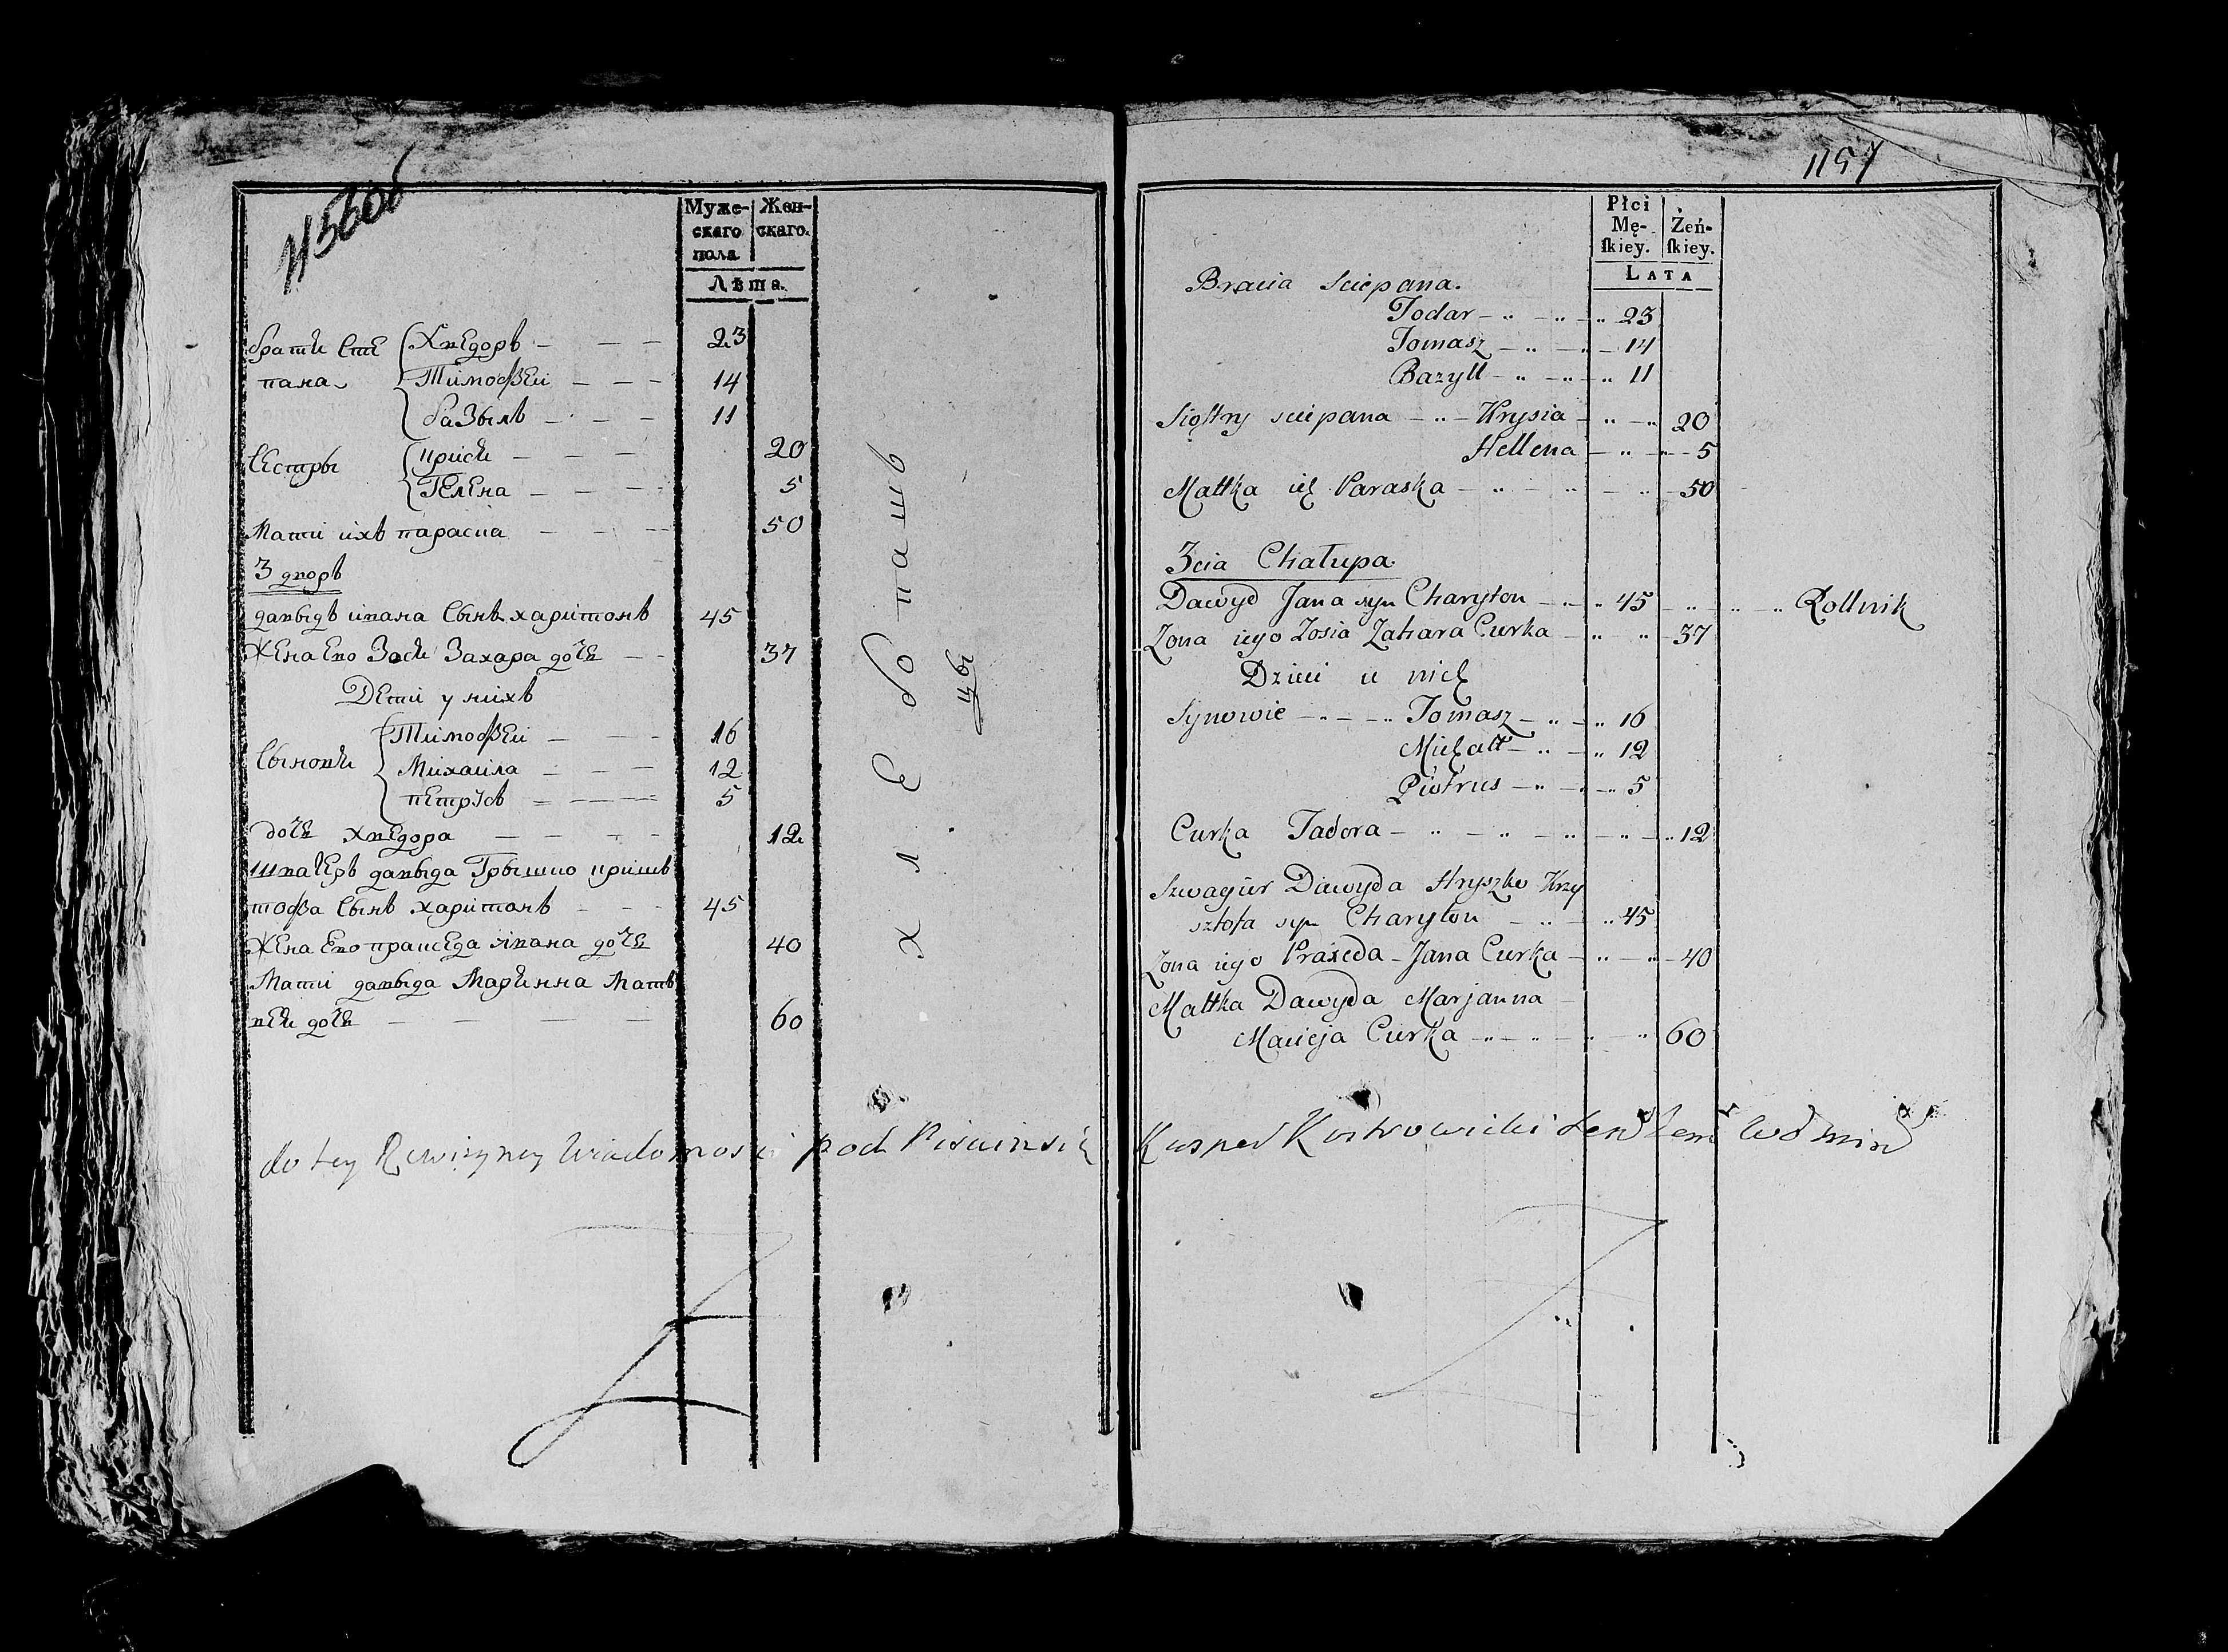 1153об
Муже-
скаго
пола
Жен-
скаго.
Лѣта.
брати Сте { Хведоръ — — — 23
пана { Тимофеи — — — 14
{ базыль — — — 11
Сестры { криси — — — 20
{ Гелена — — — 5
Мати ихъ параска — — — 50
3 дворъ
давыдъ ивана Сынъ харитонъ 45
Жена Ево Зоси Захара дочь — — 37
Дети у нихъ
Сынови { Тимофеи — — — 16
{ Михаила — — — 12
{ петрусь — — — 5
дочь хведора — — — 12
швагеръ давыда Грышко кришъ
тофа Сынъ харитонъ — — — 45
Жена Ево пракседа ивана дочь 40
Мати давыда Марианна Матъ
веи дочь — — — — 60
хлебопашъ
цы
1157
Płci
Mę-
ſkiey.
Żeń-
ſkiey.
LATA
Bracia Sciepana.
Todar — 23
Tomasz — 14
Bazyll — 11
Siostry sciepana — Krysia — 20
Hellena — 5
Mattka ich Paraska — 50
3cia Chałupa
Dawyd Jana syn Charyton — 45 — Rollnik
Zona iego Zosia Zahara Curka — 37
Dzieci u nich
Synowie — Tomasz — 16
Michałł — 12
Piotrus — 5
Curka Tadora — 12
Szwagier Dawyda Hryszko Krzy
sztofa syn Charyton — 45
Zona iego Praxeda — Jana Curka — 40
Mattka Dawyda Marjanna —
Macieja Curka — 60
do tey Rewizyney Wiadomosci podPisuiesię Kasper Kostrowicki